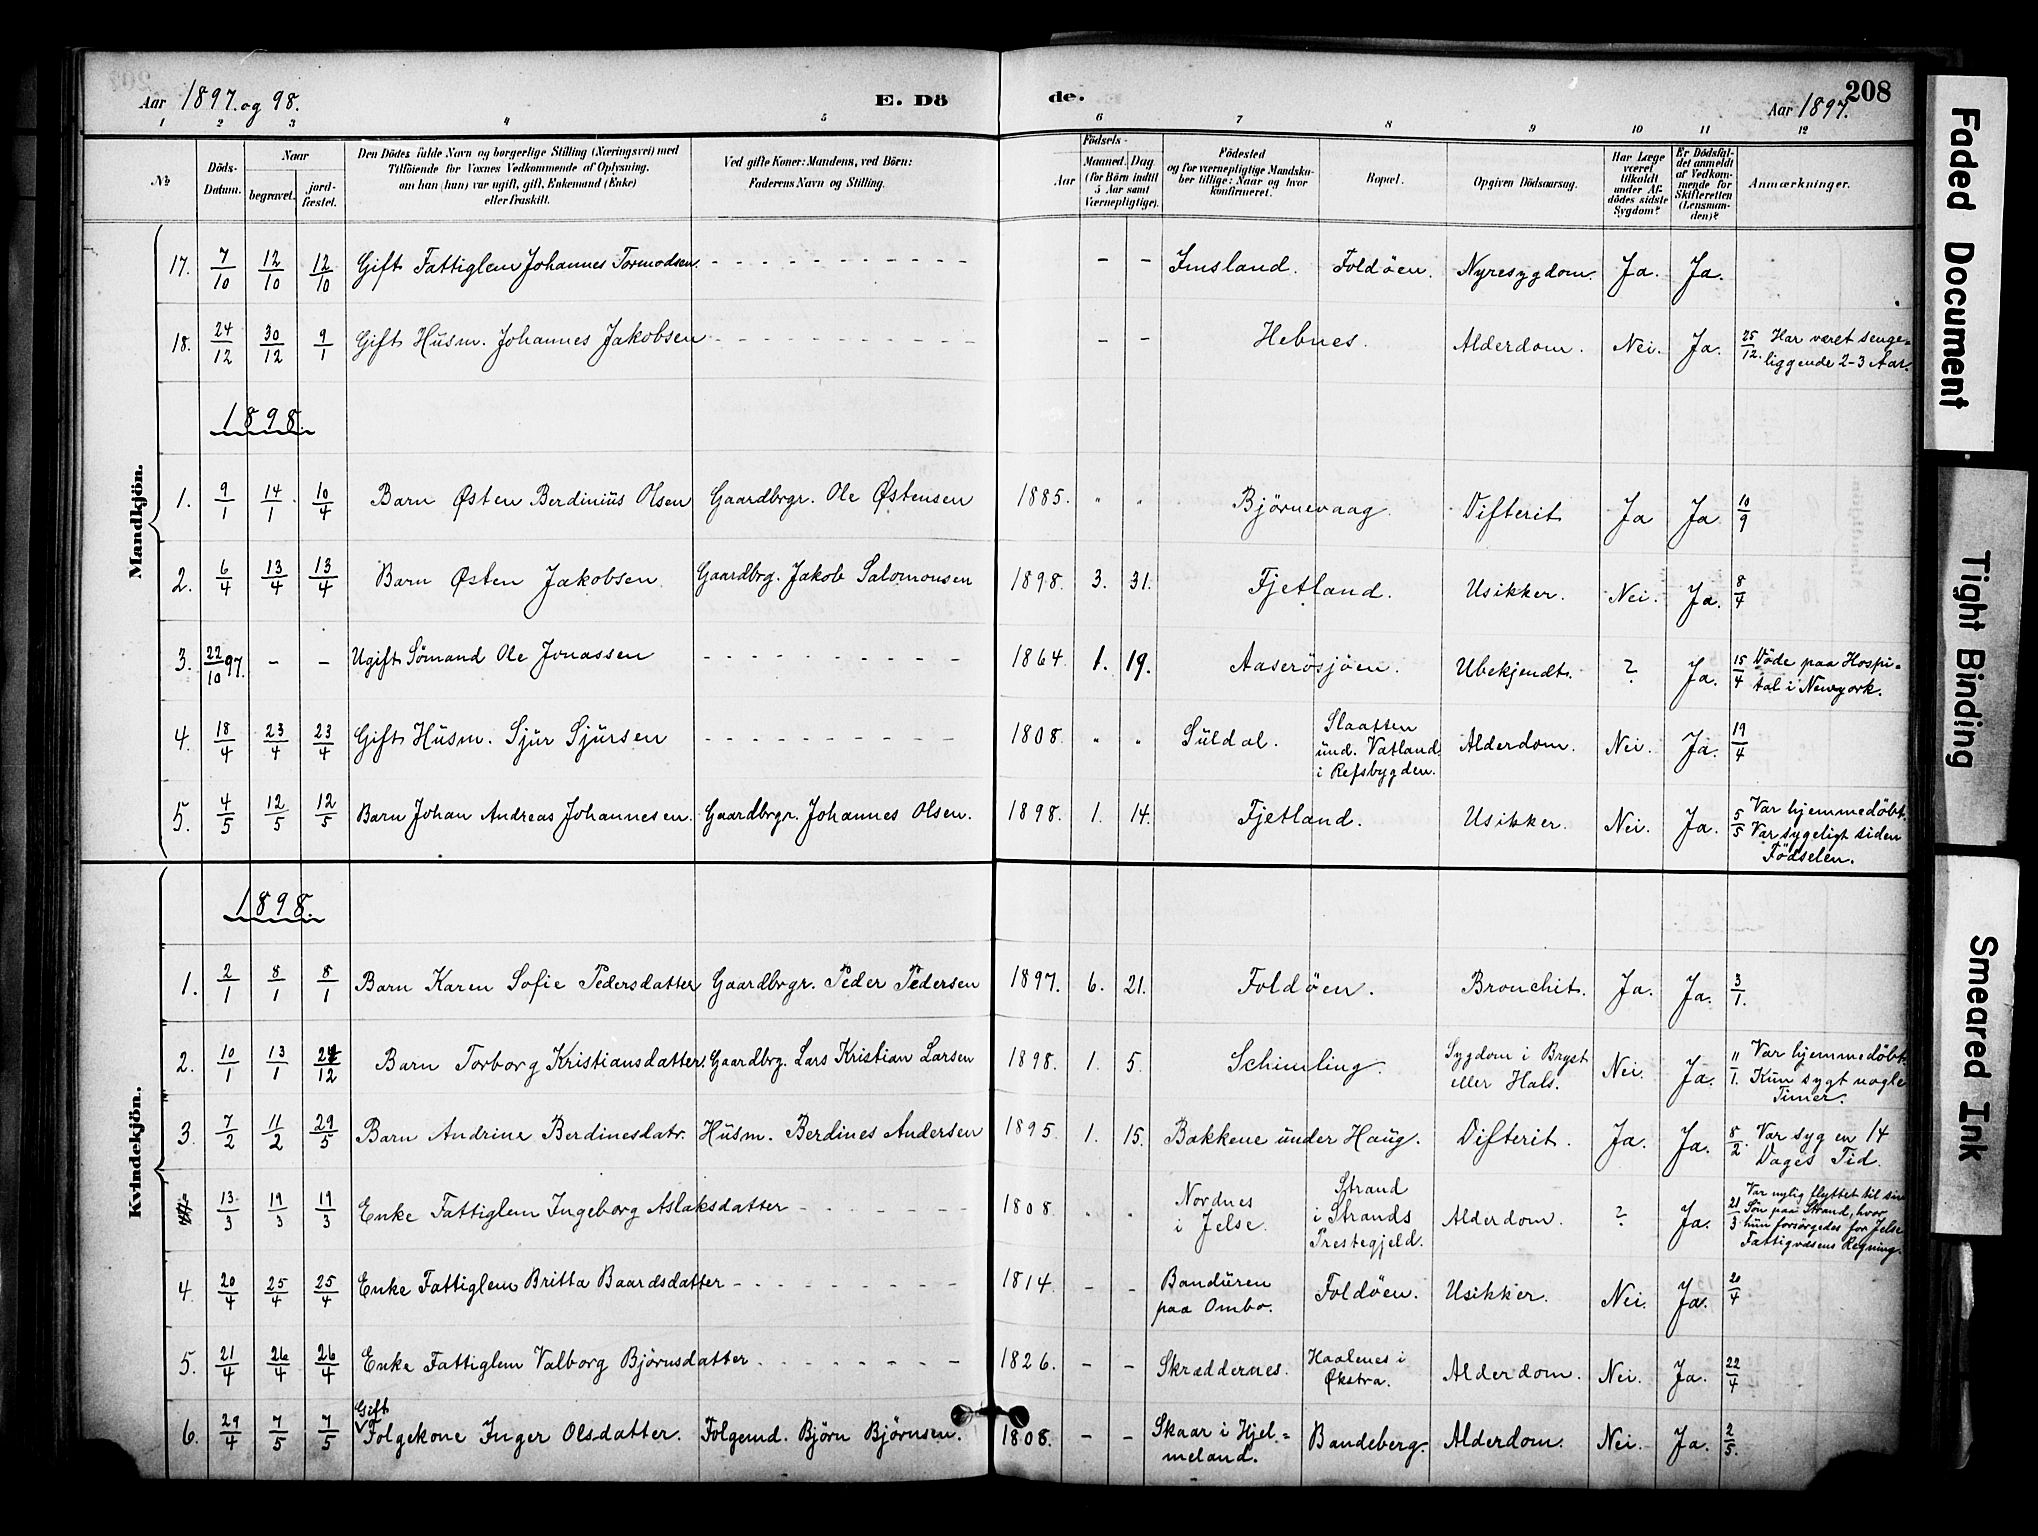 Aar 1897. og 98.
E. Dö
de.
Aar 1897.
208
1 2 3 4 5 6 7 8 9 10 11 12
№
Döds-Datum.
Naar
begravet.
jord-fæstet.
Den Dödes fulde Navn og borgerlige Stilling (Næringsvei) med
Tilföiende for Voxnes Vedkommende af Oplysning,
om han (hun) var ugift, gift, Enkemand (Enke)
eller fraskilt.
Ved gifte Koner: Mandens, ved Börn:
Faderens Navn og Stilling.
Födsels-
Aar
Maaned. Dag
(for Börn indtil
5 Aar samt
Værnepligtige).
Födested
og for værnepligtige Mandska-
ber tillige: Naar og hvor
konfirmeret.
Bopæl.
Opgiven Dödsaarsag.
Har Læge
været
tilkaldt
under Af-
dödes sidste
Sygdom?
Er Dödsfal-
det anmeldt
af Vedkom-
mende for
Skifteretten
(Lensman-
den)?
Anmærkninger.
Mandkjön.
17. 7/10 12/10 12/10 Gift Fattiglem Johannes Tormodsen. - - Imsland. Foldøen. Nyresygdom. Ja. Ja.
18. 24/12 30/12 9/1 Gift Husm. Johannes Jakobsen - - Hebnes. Alderdom. Nei. Ja. 25/12. Har været senge=
liggende 2-3 Aar.
1898.
1. 9/1 14/1 10/4 Barn Østen Berdinius Olsen Gaardbrgr. Ole Østensen 1885. " " Bjørnevaag Difterit Ja Ja 10/9
2. 6/4 13/4 13/4 Barn Østen Jakobsen Gaardbrg. Jakob Salomonsen 1898. 3. 31. Fjetland. Usikker. Nei. Ja. 8/4
3. 22/10 97. - - Ugift Sömand Ole Jonassen 1864. 1. 19. Aaserøsjøen. Ubekjendt. ? Ja. 15/4 Döde paa Hospi=
tal i Newyork.
4. 18/4 23/4 23/4 Gift Husm. Sjur Sjursen 1808. " " Suldal. Slaatten
und. Vatland
i Refsbygden. Alderdom. Nei. Ja. 19/4
5. 4/5 12/5 12/5 Barn Johan Andreas Johannesen. Gaardbrgr. Johannes Olsen. 1898. 1. 14. Fjetland. Usikker. Nei. Ja. 5/5 Var hjemmedöbt.
Var sygeligt siden
Födselen.
Kvindekjön.
1898.
1. 2/1 8/1 8/1 Barn Karen Sofie Pedersdatter Gaardbrgr. Peder Pedersen 1897. 6. 21. Foldøen. Bronchit. Ja. Ja. 3/1.
2. 10/1 13/1 Barn Torborg Kristiansdatter. Gaardbrg. Lars Kristian Larsen 1898. 1. 5. Schimling. Sygdom i Bryst
eller Hals. Nei. Ja. 11/1. Var hjemmedöbt.
Kun sygt nogle
Timer.
3. 7/2 11/2 29/5 Barn Andrine Berdinesdatr. Husm. Berdines Andersen 1895. 1. 15. Bakkene under Haug. Difterit. Ja. Ja. 8/2. Var syg en 14
Dages Tid.
13/3 19/3 19/3 Enke Fattiglem Ingeborg Aslaksdatter 1808. " " Nordnes
i Jelse. Strand
i Strands
Prestegjeld. Alderdom. ? Ja. 21/3 Var nylig flyttet til sin
Søn paa Strand, hvor
hun forsörgedes for Jelse
Fattigvæsens Regning.
4. 20/4 25/4 25/4 Enke Fattiglem Britta Baardsdatter 1814. - - Banduren
paa Ombo. Foldøen. Usikker. Nei. Ja. 20/4
5. 21/4 26/4 26/4 Enke Fattiglem Valborg Bjørnsdatter 1826. - - Skræddernes. Haalenes i
Økstra. Alderdom. Nei. Ja. 22/4
6. 29/4 7/5 7/5 Gift
Folgekone Inger Olsdatter. Folgemd. Bjørn Bjørnsen. 1808. - - Skaar i Hjel=
meland. Bandeberg. Alderdom. Nei. Ja. 2/5.
Faded Document
Tight Binding
Smeared Ink